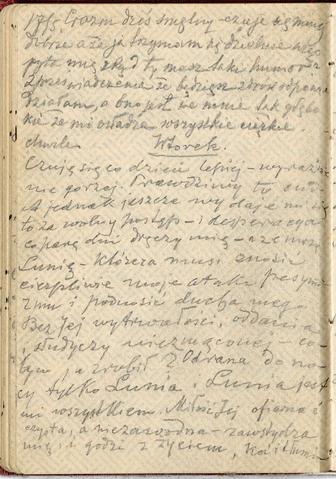 175 Czoem dziś smętny – czuje się mniej
dobrze a że ja trzymam się dzielnie więc
pyta mię skąd ty masz taki humor
Z przeświadczenia że będziesz zdrów odpowie
działam, a ono jest we mnie tak głębo
kie że mi osładza wszystkie ciężkie
chwile. Wtorek.
Czują się co dzień lepiej – wyraźnie
nie gorzej. Prawdziwy to cud!
A jednak jeszcze wydaje mi się
to za wolny postęp – i desperacja
co parę dni dręczy mię – a ze mną
Lunię – która musi znosić
cierpliwie moje ataki pesymi
zmu i podnosić ducha mego
Bez Jej wytrwałości, oddania
, słodyczy niezmąconej – co
bym ja zrobił? Od rana do no
cy tylko Lunia i Lunia jest
mi wszystkiem. Miłość Jej ofiarna i
czysta, a niezawodna – zawstydza
mię i godzi z życiem,